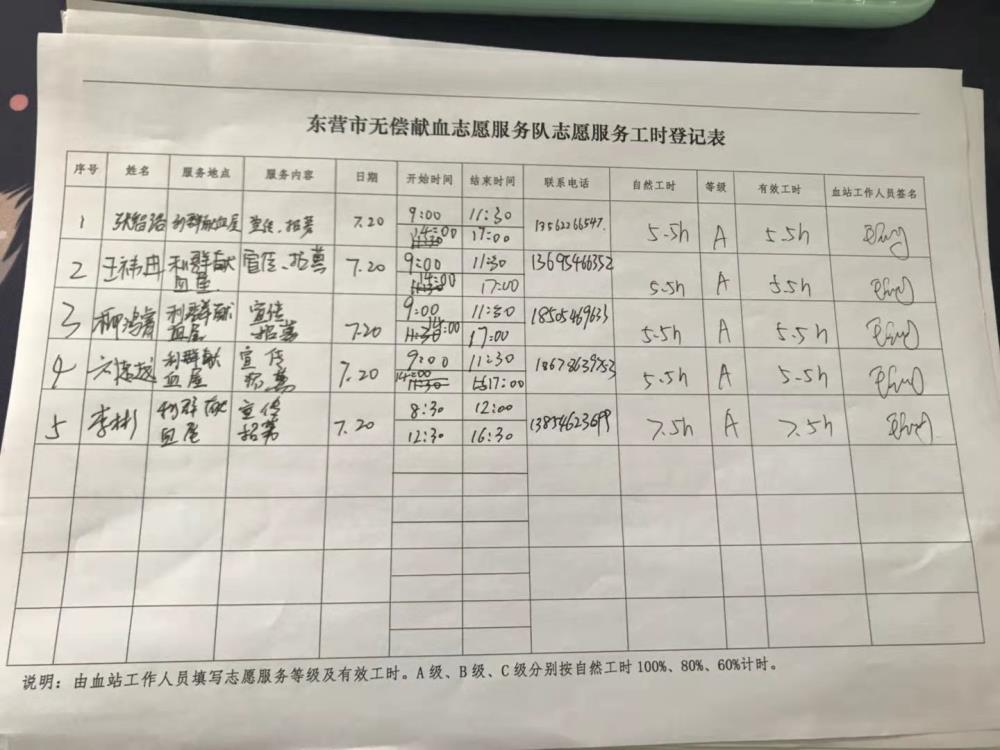 东营市无偿献血志愿服务队志愿服务工时登记表
序号 姓名 服务地点 服务内容 日期 开始时间 结束时间 联系电话 自然工时 等级 有效工时 血站工作人员签名
1 利群献血屋 宣传、招募 7.20 9:00 11:30 13562266547. 5.5h A 5.5h
14:00 17:00
2 利群献 宣传、招募 7.20 9:00 11:30 13695466352 5.5h A 5.5h
血屋 14:00 17:00
3 柳鸿睿 利群献 宣传 7.20 9:00 11:30 18505469633 5.5h A 5.5h
血屋 招募 11:30 14:00 17:00
4 利群献 宣传 7.20 9:00 11:30 18678639753 5.5h A 5.5h
血屋 招募 14:00 11:30 17:00
5 李彬 利群献 宣传 7.20 8:30 12:00 13854623699 7.5h A 7.5h
血屋 招募 12:30 16:30
说明：由血站工作人员填写志愿服务等级及有效工时。A级、B级、C级分别按自然工时100%、80%、60%计时。